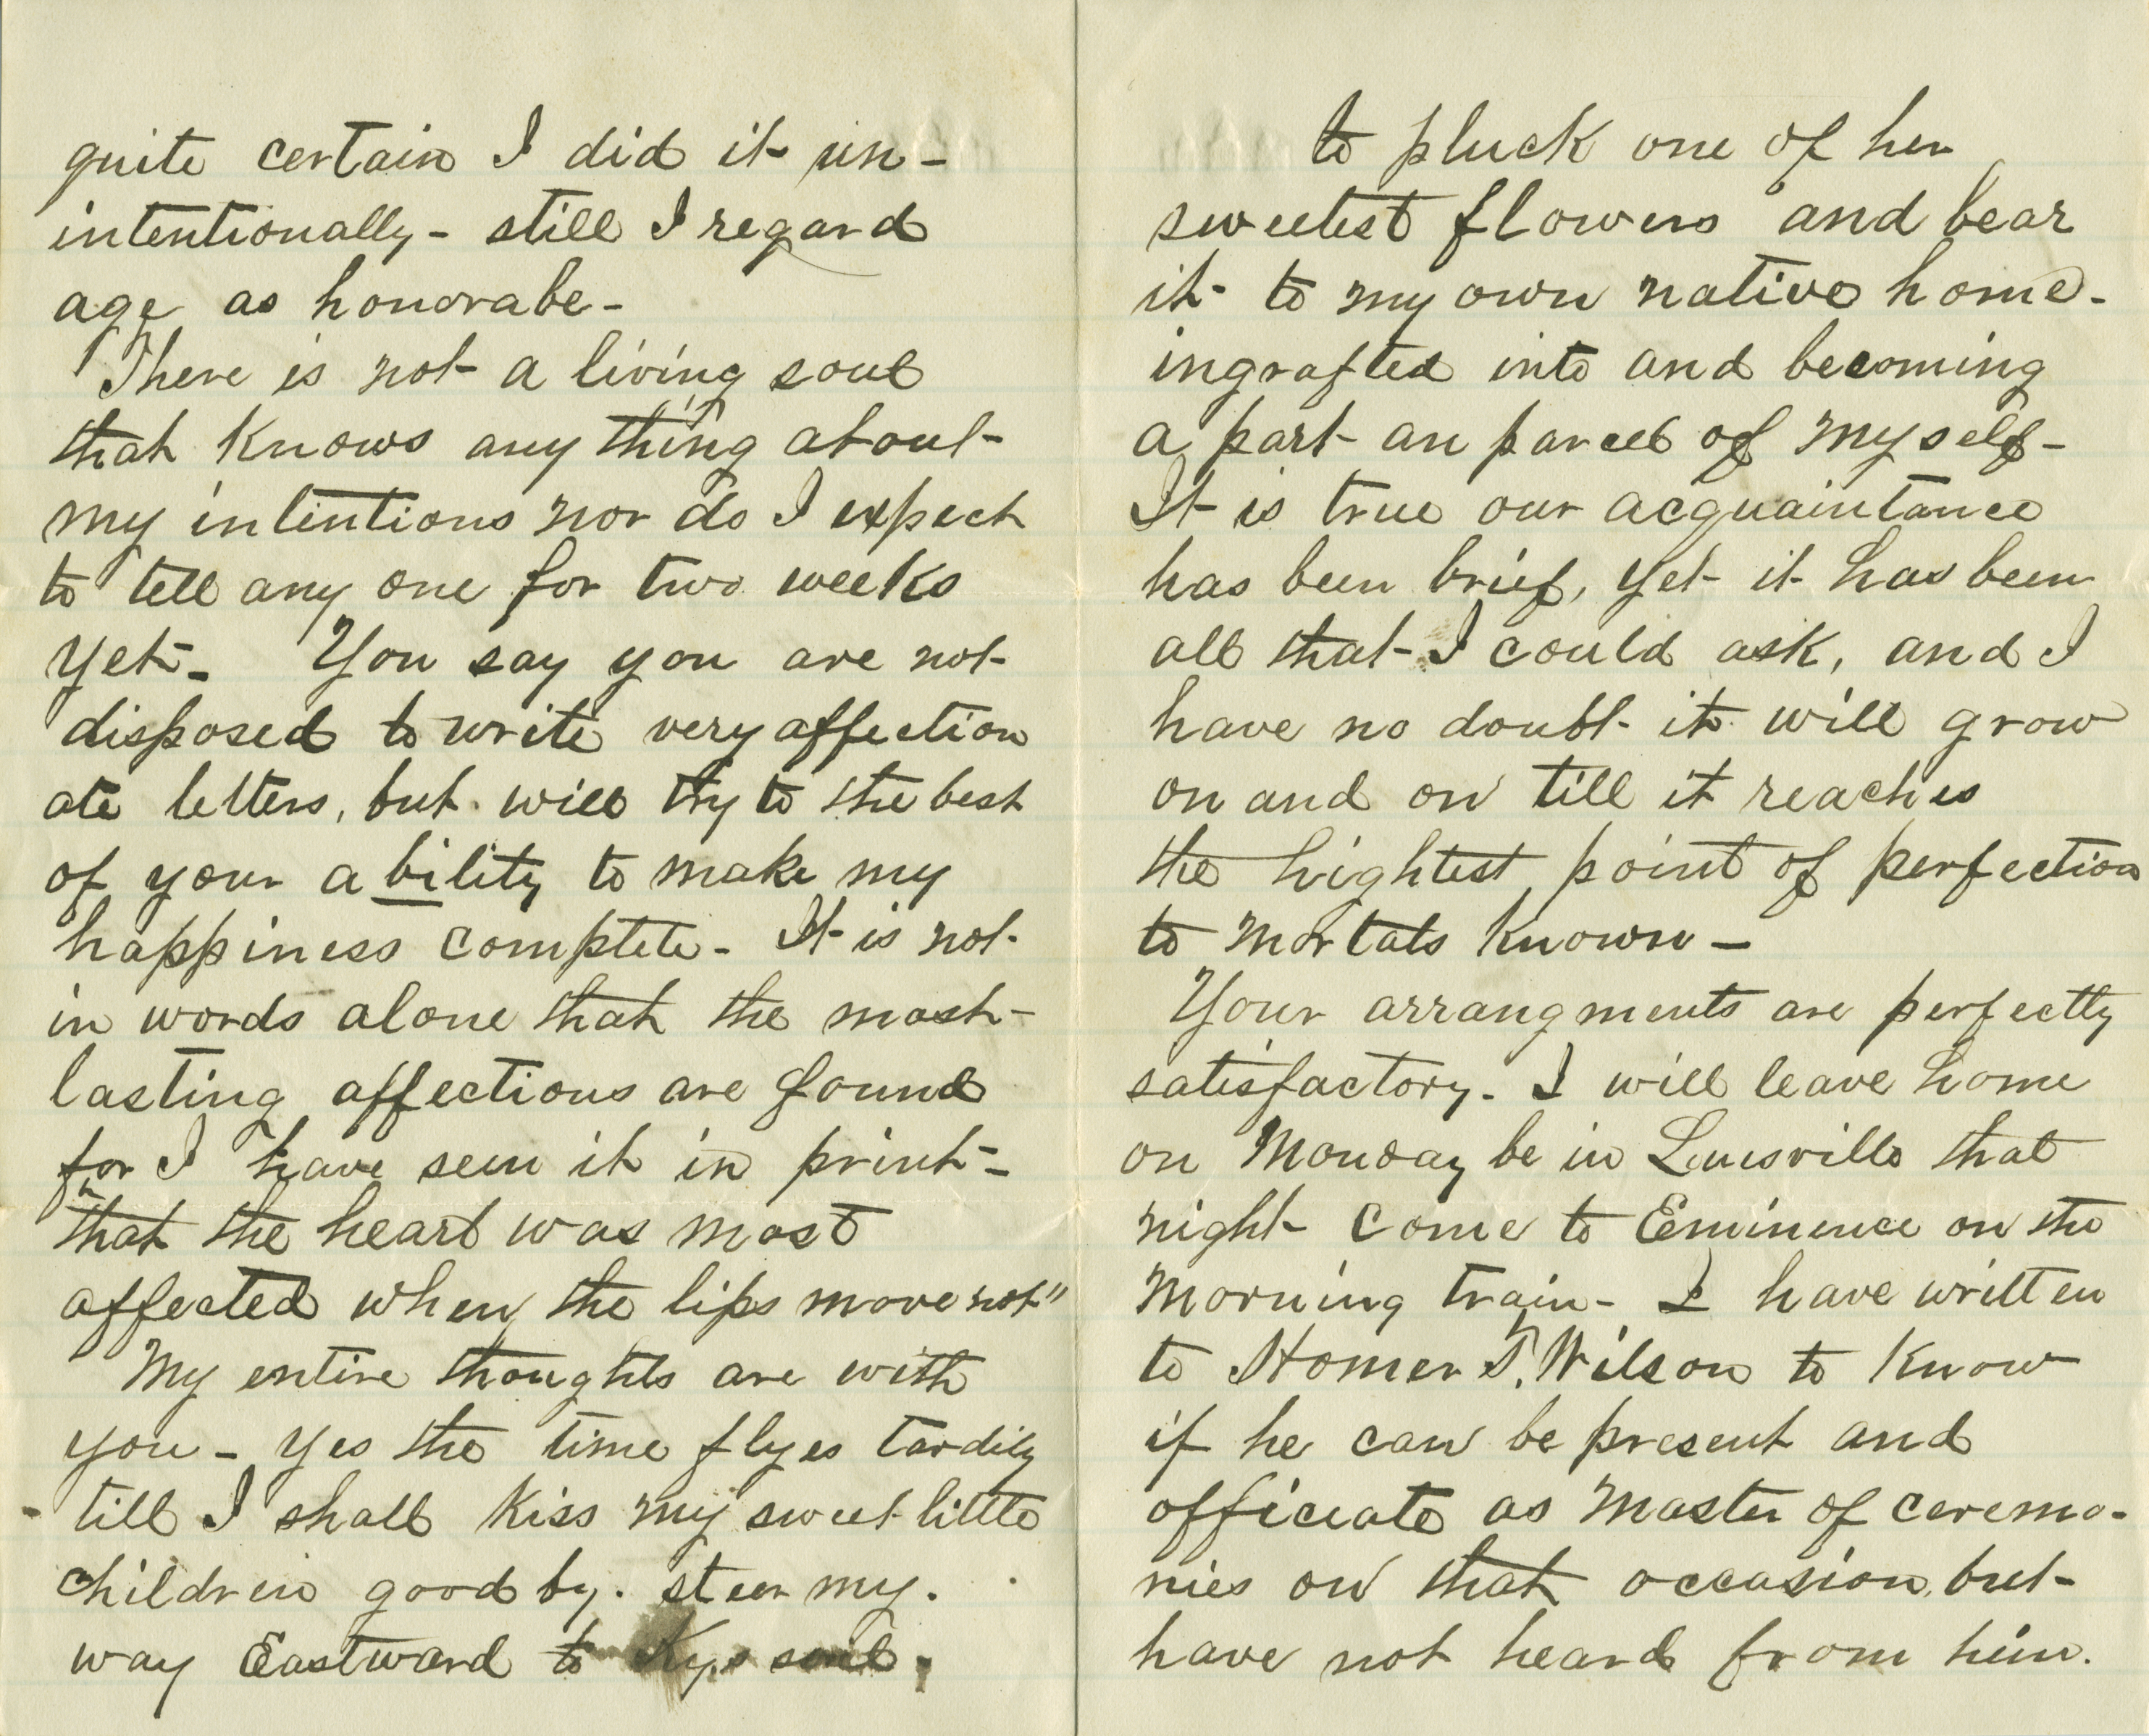 quite certain I did it un-
intentionally - still I regard
age as honorabe -
There is not a living soul
that knows any thing about
my intentions nor do I expect
to tell any one for two weeks
yet - You say you are not
disposed to write very affection
ate letters, but will try to the best
of your ability to make my
happiness complete - It is not
in words alone that the most
lasting affections are found
for I have seen it in print -
"that the heart was most
affected when the lips move not"
My entire thoughts are with
you - yes the time flyes tardily
- till I shall kiss my sweet little
children good by. steer my.
way Eastward to Kys soil.
to pluck one of her
sweetest flowers and bear
it to my own native home -
ingrafted into and becoming
a part an parcel of myself -
It is true our acquaintance
has been brief, yet it has been
all that I could ask, and I
have no doubt it will grow
on and on till it reaches
the hightest point of perfection
to mortals known -
Your arrangments are perfectly
satisfactory. I will leave home
on Monday be in Louisville that
night come to Eminence on the
morning train - I have written
to Homer T. Wilson to know
if he can be present and
officiate as master of ceremo-
nies on that occasion, but
have not heard from him.